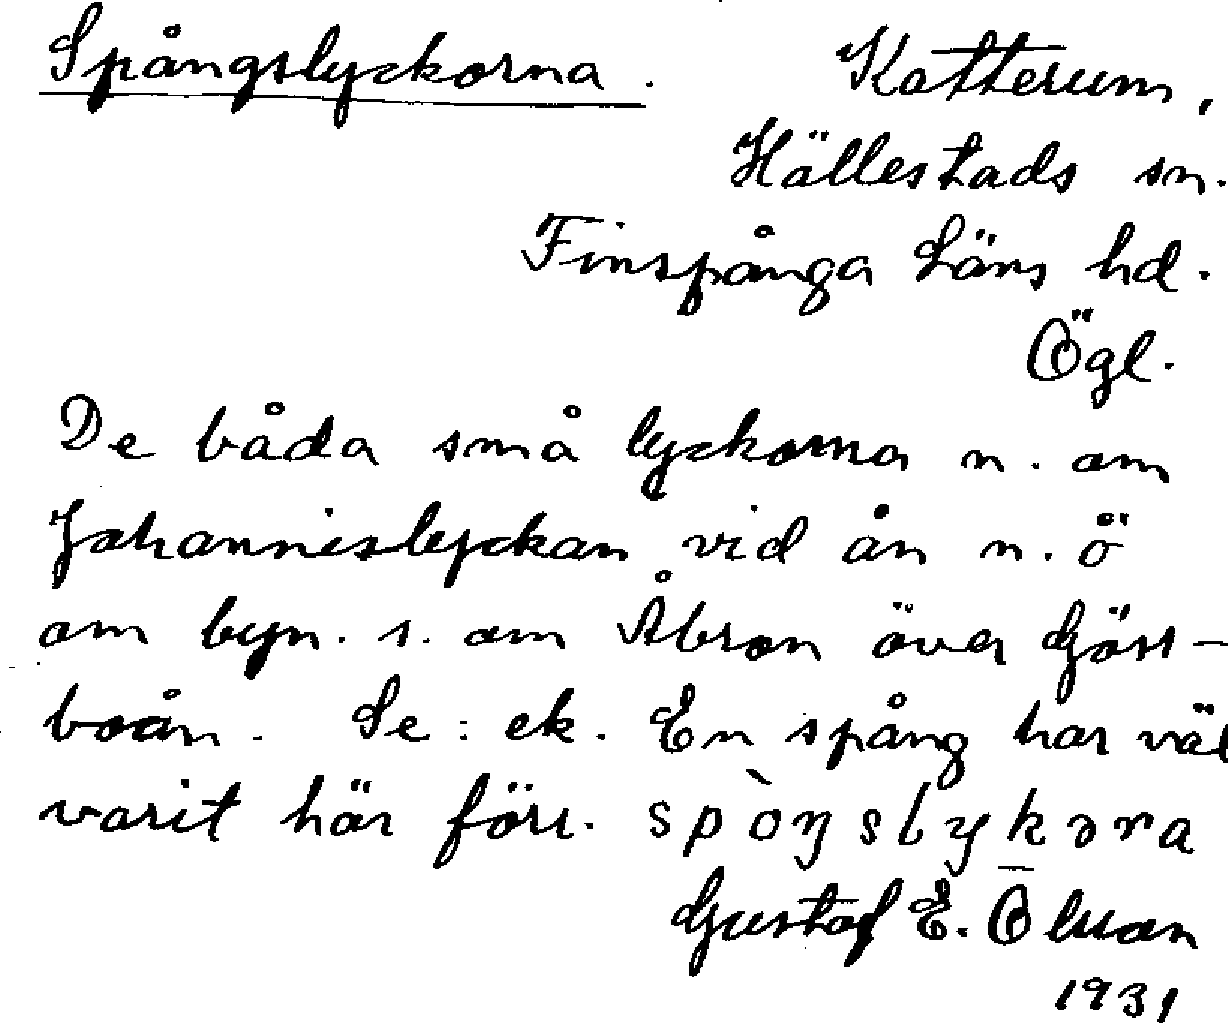 Spångslyckorna. Katterum,
Hällestads sn.
Finspånga Läns hd.
Ögl.
De båda små lyckorna n. om
Johannislyckan vid ån n. ö
om byn. s. om Åbron över Göss-
boån. Se: ek. En spång har väl
varit här förr. spòŋslykɔra
Gustaf E.
1931